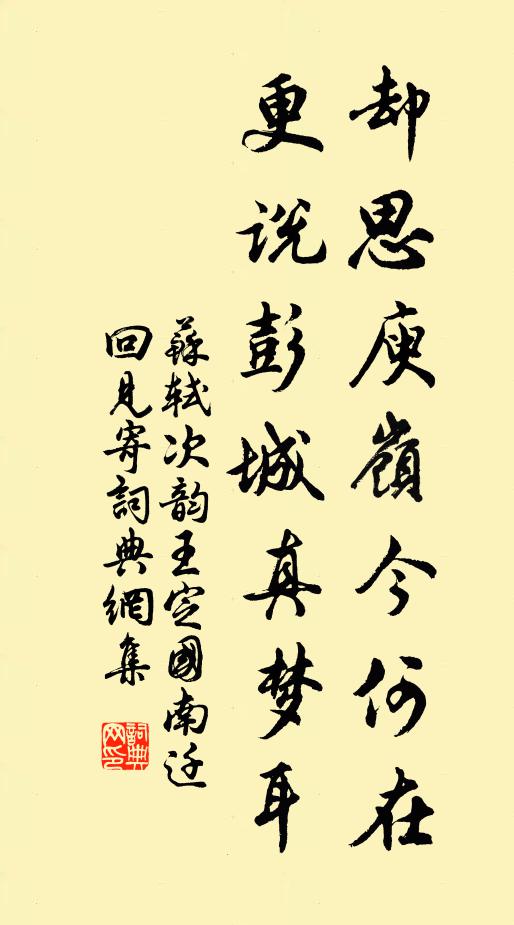 却思庾嶺今何在
更说彭城真梦耳
蘇軾次韵王定國南迁
回見寄詞典網集
詞典
网印